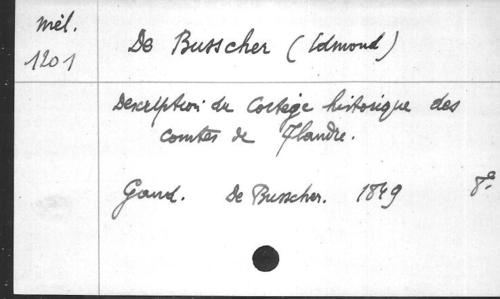 Mél.
1201
De Busscher (Edmond)
Description du Cortège historique des
comtes de Flandre.
Gand. De Busscher. 1849 8°